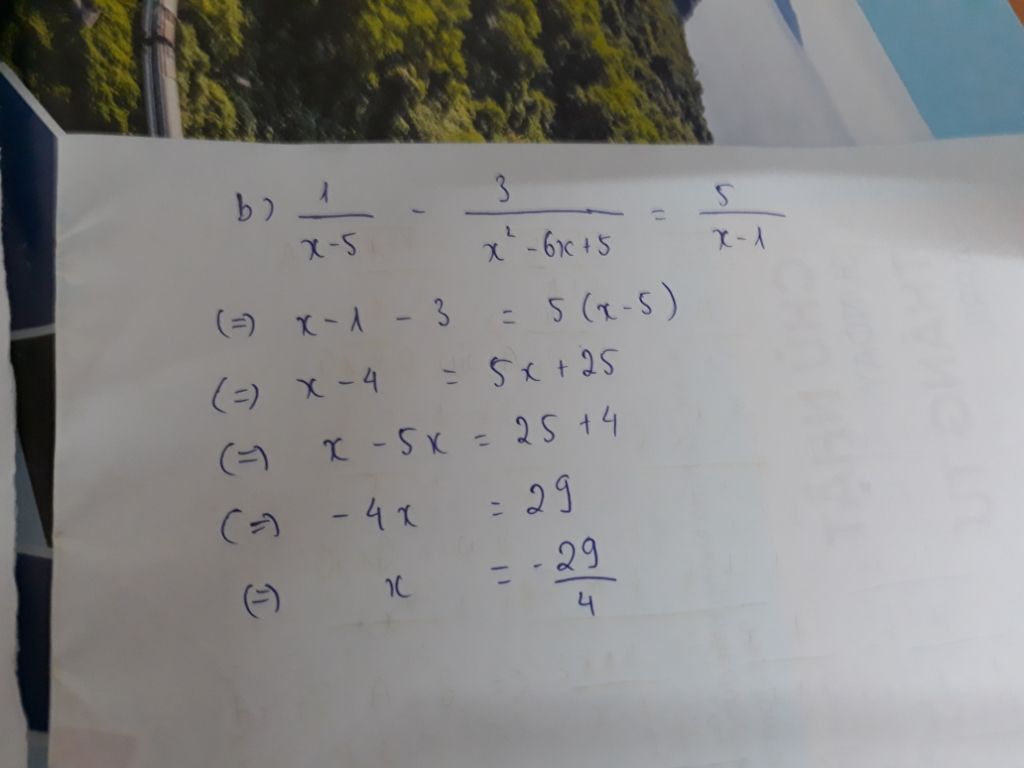 b) 1/(x-5) - 3/(x²-6x+5) = 5/(x-1)
(=) x-1-3 = 5(x-5)
(=) x-4 = 5x+25
(=) x-5x = 25+4
(=) -4x = 29
(=) x = -29/4